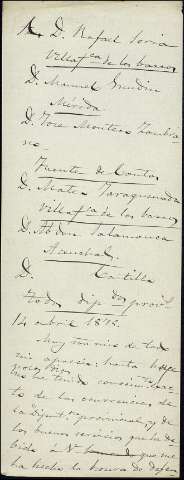 A D. Rafael Soria
Villafca de los barros
D. Manuel Grudin
Mérida
D. Jose Montero Zambra
no.
Fuente de Cantos
D. Mateo Jaraquemada
Villafca de los barros
D. Abdon Salamanca
Aceuchal
D. Castilla
Todos dip dos provil
14 abril 1875.
Muy Sr mio de toda
mi aprecia: hasta hoy
no he tenido conocimien
to de las ocurrencias de
la Diputon provincial, y de
los buenos servicios que ha de
bido á V que me
ha hecho la honra de